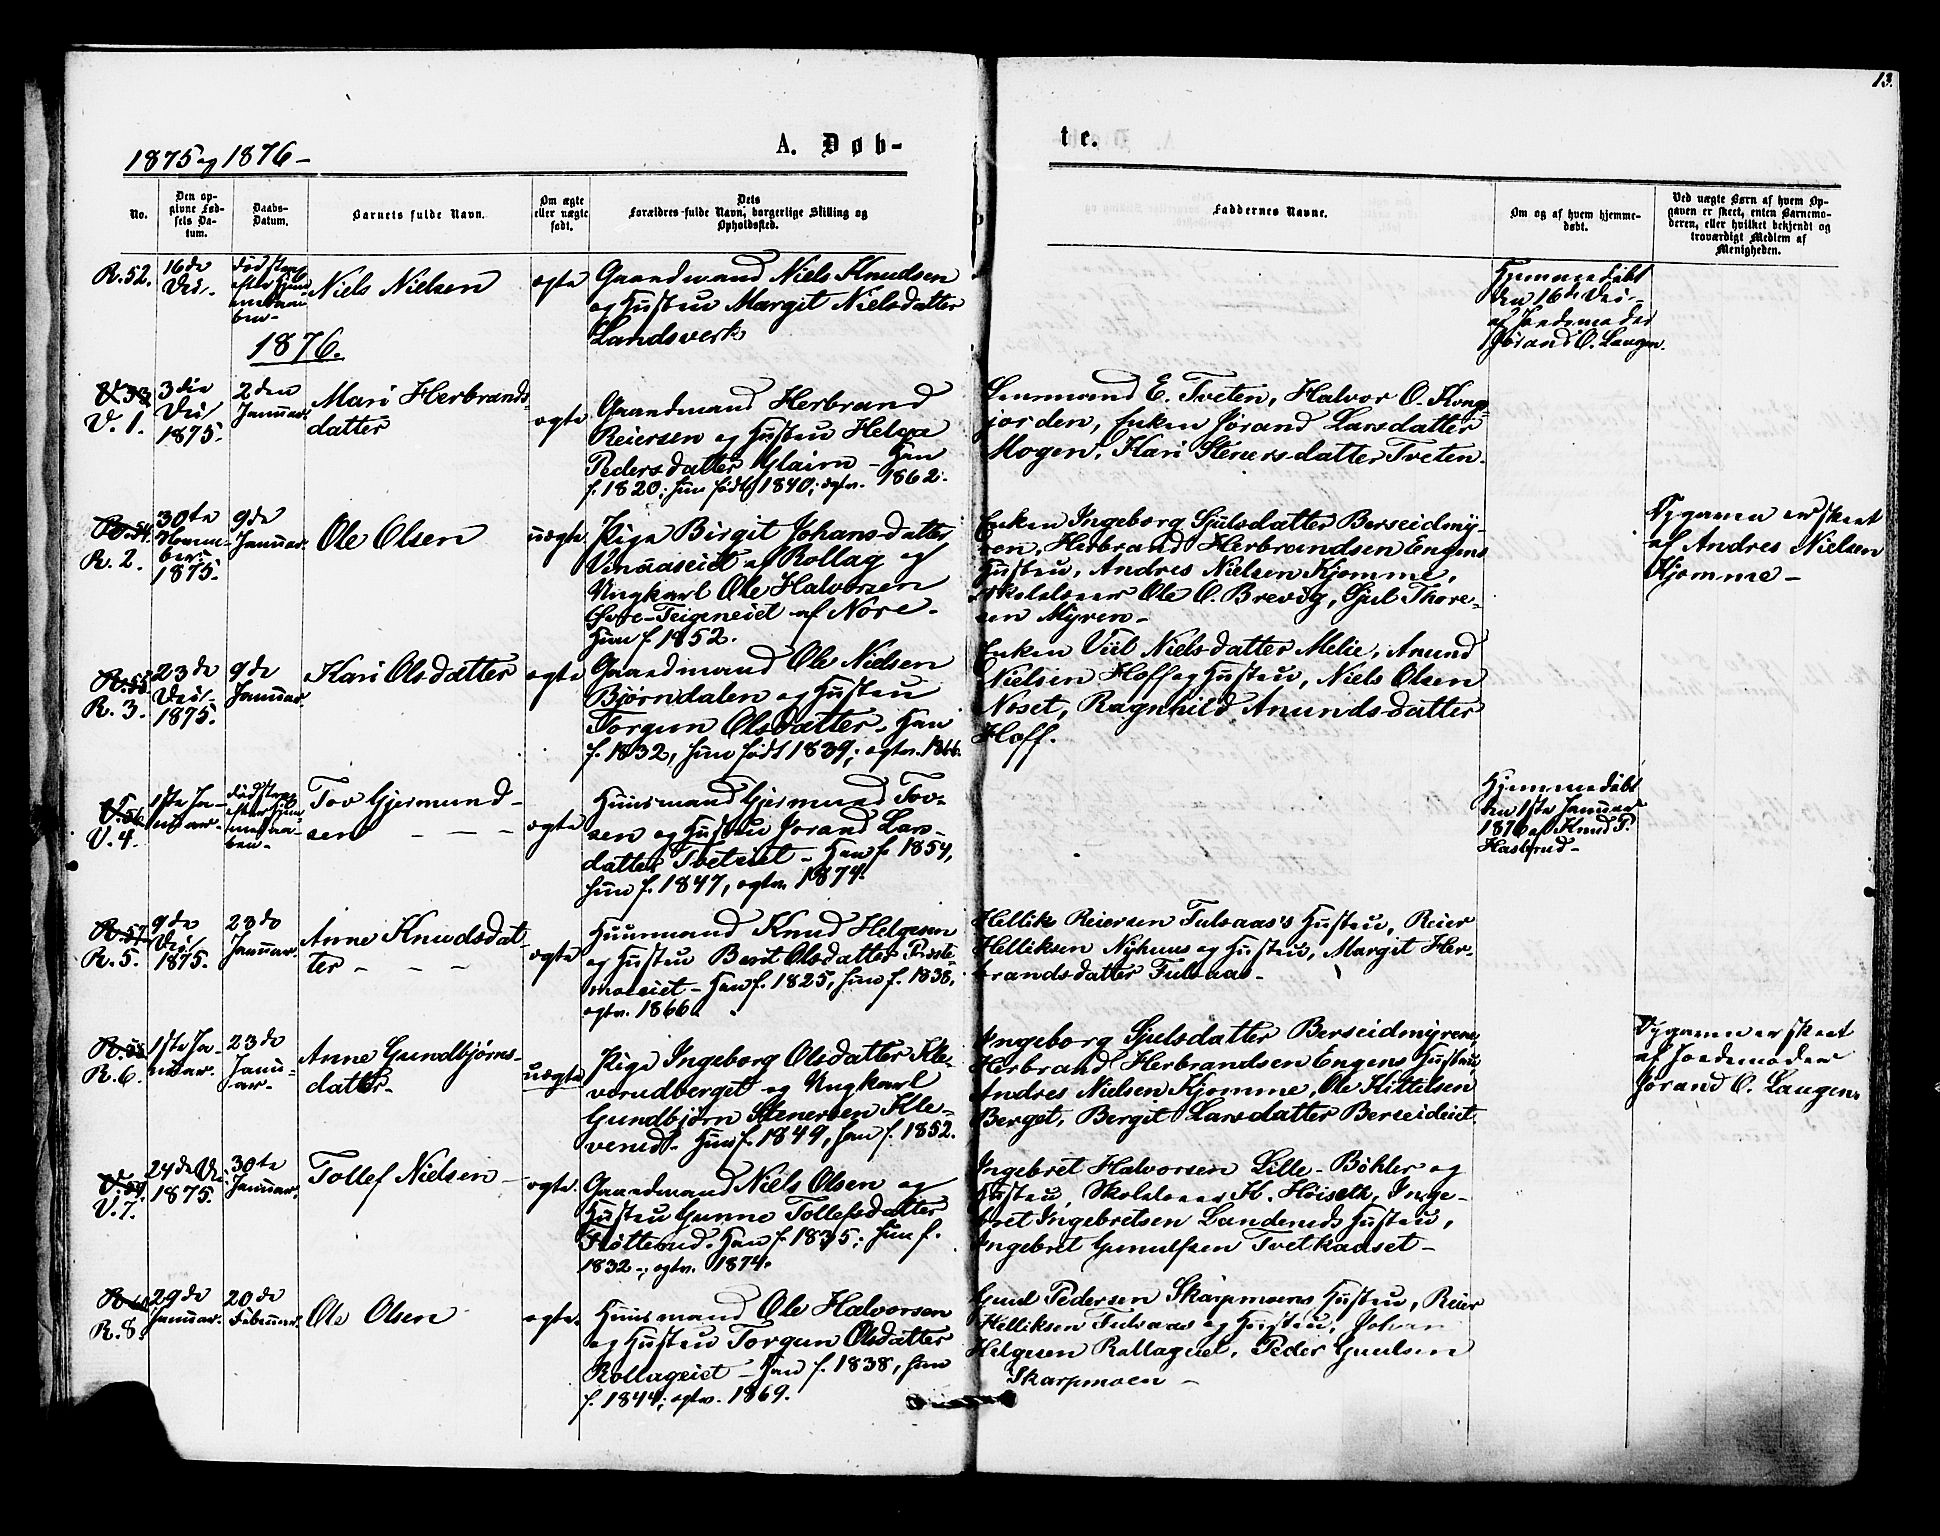 13.
1875 og 1876 –
A. Døb-
te.
No.
Den op-
givne Fød-
sels Da-
tum.
Daabs-
Datum.
Barnets fulde Navn.
Om ægte
eller uægte
født.
Dets
Forældres fulde Navn, borgerlige Stilling og
Opholdssted.
Faddernes Navne.
Om og af hvem hjemme-
døbt.
Ved uægte Børn af hvem Op-
gaven er skeet, enten Barnemo-
deren, eller hvilket bekjendt og
troværdigt Medlem af
Menigheden.
R. 52.
16de
Des.
Død strax
efter Hjem-
medaa-
ben –
Niels Nielsen
ægte
Gaardmand Niels Knudsen
og Hustru Margit Nielsdatter
Landsverk
Hjemmedøbt
den 16de Des.
af Jordemoder
Jørand O. Laugen.
1876.
V. 53
V. 1.
3die
Des.
1875.
2den
Januar.
Mari Herbrands-
datter
ægte
Gaardmand Herbrand
Reiersen og Hustru Helga
Pedersdatter Glaim – Han
f. 1820; hun født 1840; ægtv. 1862.
Lensmand E. Tveten, Halvor O. Kong-
jorden, Enken Jørand Larsdatter
Mogen, Kari Stenersdatter Tveten.
R. 54.
R. 2.
30te
Novem-
ber
1875.
9de
Januar.
Ole Olsen
uægte
Pige Birgit Johansdatter
Vinaaseiet af Rollag og
Ungkarl Ole Halvorsen
Øvre-Teigeneiet af Nore.
Hun f. 1852.
Enken Ingeborg Gjulsdatter Berseidmy-
ren, Herbrand Herbrandsen Engens
Hustru, Andres Nielsen Kjomme,
Skolelærer Ole O. Brevig, Gjul Thore-
sen Myren –
Opgaven er skeet
af Andres Nielsen
Kjomme –
R. 55
R. 3.
23de
Des.
1875.
9de
Januar.
Kari Olsdatter
ægte
Gaardmand Ole Nielsen
Bjørndalen og Hustru
Torgun Olsdatter. Han
f. 1832, hun født 1839; ægtv. 1866.
Enken Viel Nielsdatter Melie, Anund
Nielsen Hoff og Hustru, Niels Olsen
Noset, Ragnhild Anundsdatter
Hoff.
V. 56
V. 4.
1ste Ja-
nuar.
Død strax
efter Hjem-
medaa-
ben –
Tov Gjermund-
sen – – –
ægte
Huusmand Gjermund Tov-
sen og Hustru Jorand Lars-
datter Tveteiet – Han f. 1854,
hun f. 1847, ægtv. 1874.
Hjemmedøbt
den 1ste Januar
1876 af Knud P.
Hasbrud –
R. 57
R. 5.
9de
Des.
1875.
23de
Januar.
Anne Knudsdat-
ter – – –
ægte
Huusmand Knud Helgesen
og Hustru Berit Olsdatter Prste-
moeeiet – Han f. 1825, hun f. 1838,
ægtv. 1866.
Hellik Reiersen Fulsaas's Hustru, Reier
Helliksen Nyhuus og Hustru, Margit Her-
brandsdatter Fulsaas –
R. 58
R. 6.
1ste Ja-
nuar.
23de
Janu-
ar.
Anne Gundbjørns-
datter –
uægte
Pige Ingeborg Olsdatter Kle-
verudberget og Ungkarl
Gundbjørn Stenersen Kle-
verud – Hun f. 1849, han f. 1852.
Ingeborg Gjulsdatter Berseidmyren,
Herbrand Herbrandsen Engens Hustru
Andres Nielsen Kjomme, Ole Kittilsen
Berget, Bergit Larsdatter Berseideiet.
Opgaven er skeet
af Jordemoder
Jørand O. Laugen.
V. 59
V. 7.
24de Des
1875.
30te
Januar.
Tollef Nielsen –
ægte.
Gaardmand Niels Olsen og
Hustru Gunne Tollefsdatter
Fløtterud. Han f. 1835; hun f.
1832 –, ægtv. 1874.
Ingebret Halvorsen Lille-Bøhler og
Hustru, Skolelærer H. Høiseth, Inge-
bret Ingebretsen Landeruds Hustru,
Ingebret Gunulfsen Tvetkaaset –
R. 60
R. 8.
29de
Januar.
20de
Februar.
Ole Olsen
ægte.
Huusmand Ole Halvorsen
og Hustru Torgun Olsdatter
Rollageiet – Han f. 1838, hun
f. 1844; ægtv. 1869.
Gund Pedersen Skarpmoens Hustru, Reier
Helliksen Fulsaas og Hustru, Johan
Helgesen Rollageiet, Peder Gundsen
Skarpmoen –